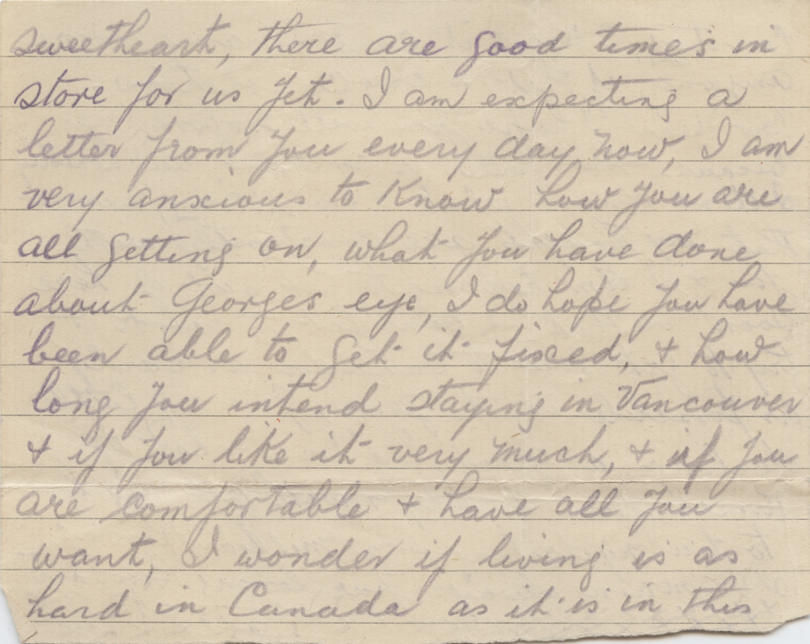 sweetheart, there are good times in
store for us yet. I am expecting a
letter from you every day now, I am
very anxious to know how you are
all getting on, what you have done
about Georges eye, I do hope you have
been able to get it fixed, & how
long you intend staying in Vancouver
& if you like it very much, & if you
are comfortable & have all you
want, I wonder if living is as
hard in Canada as it is in this